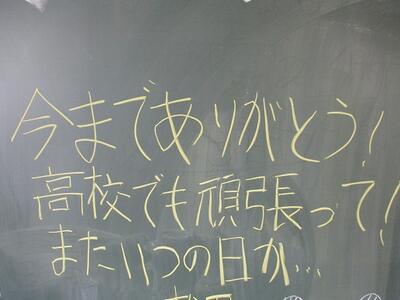 今までありがとう！
高校でも頑張って！
またいつの日か…